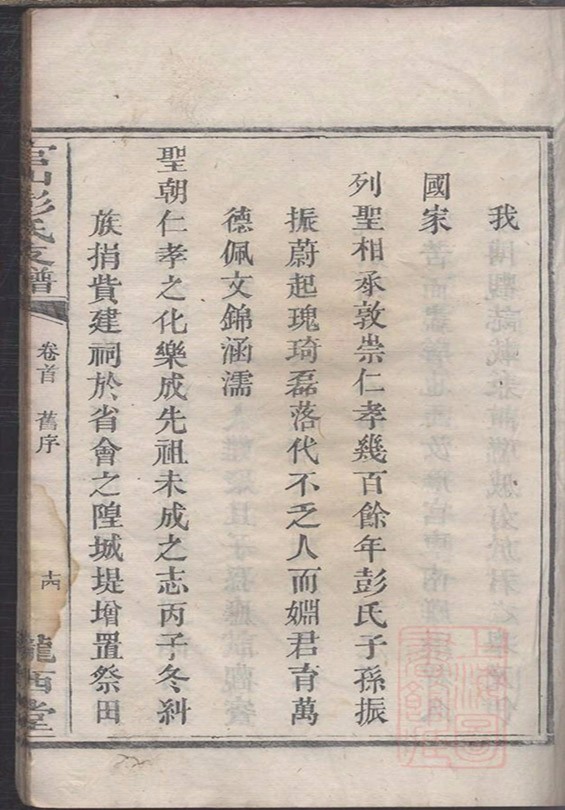 我
國家
列聖相承敦崇仁孝幾百餘年彭氏子孫振
振蔚起瑰琦磊落代不乏人而婣君育萬
德佩文錦涵濡
聖朝仁孝之化樂成先祖未成之志丙子冬糾
族捐貲建祠於省會之隍城堤增置祭田
官山彭氏支譜
卷首 舊序
隴西堂